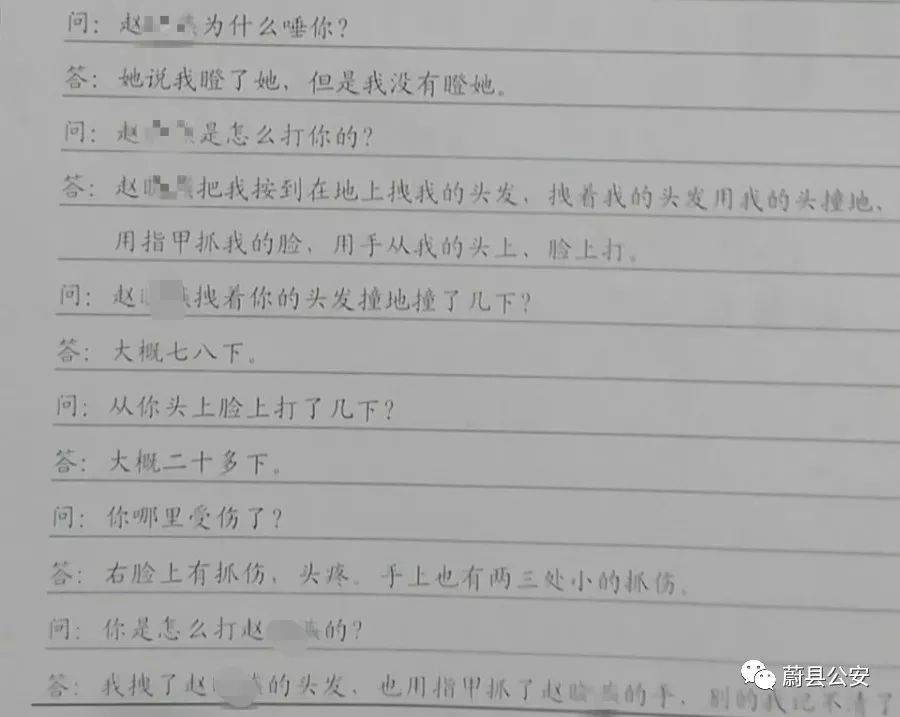 问：赵为什么唾你？
答：她说我瞪了她，但是我没有瞪她。
问：赵是怎么打你的？
答：赵把我按到在地上拽我的头发，拽着我的头发用我的头撞地、
用指甲抓我的脸，用手从我的头上、脸上打。
问：赵拽着你的头发撞地撞了几下？
答：大概七八下。
问：从你头上脸上打了几下？
答：大概二十多下。
问：你哪里受伤了？
答：右脸上有抓伤，头疼。手上也有两三处小的抓伤。
问：你是怎么打赵的？
答：我拽了赵的头发，也用指甲抓了赵的手，别的我记不清了
蔚县公安